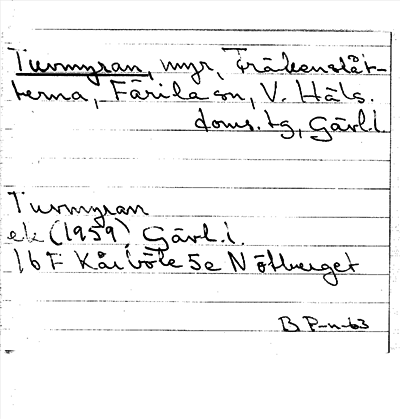 Tuvmyran, myr, Träkenslåt-
terna, Färila sn, V. Häls.
doms. tg, Gävl.l.
Tuvmyran
ek (1959) Gävl.l.
16F Kårböle 5e Nötberget
B P-n-63